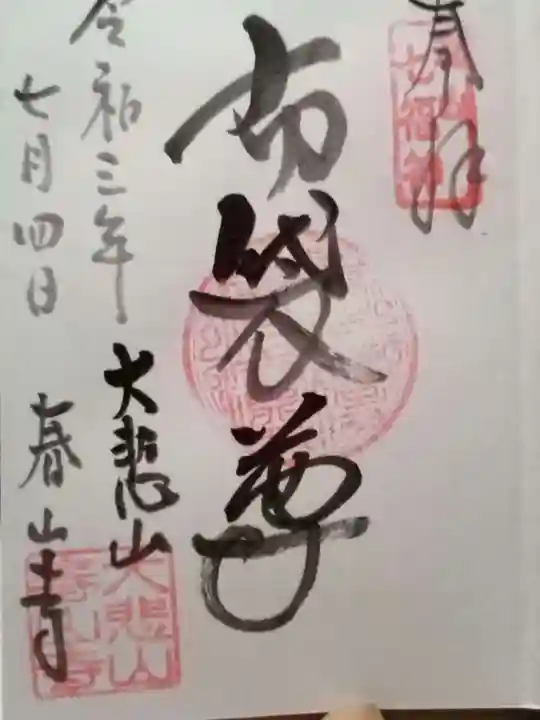 奉拝
布袋尊
大悲山
令和三年
七月四日
春山寺
大悲山
春山寺